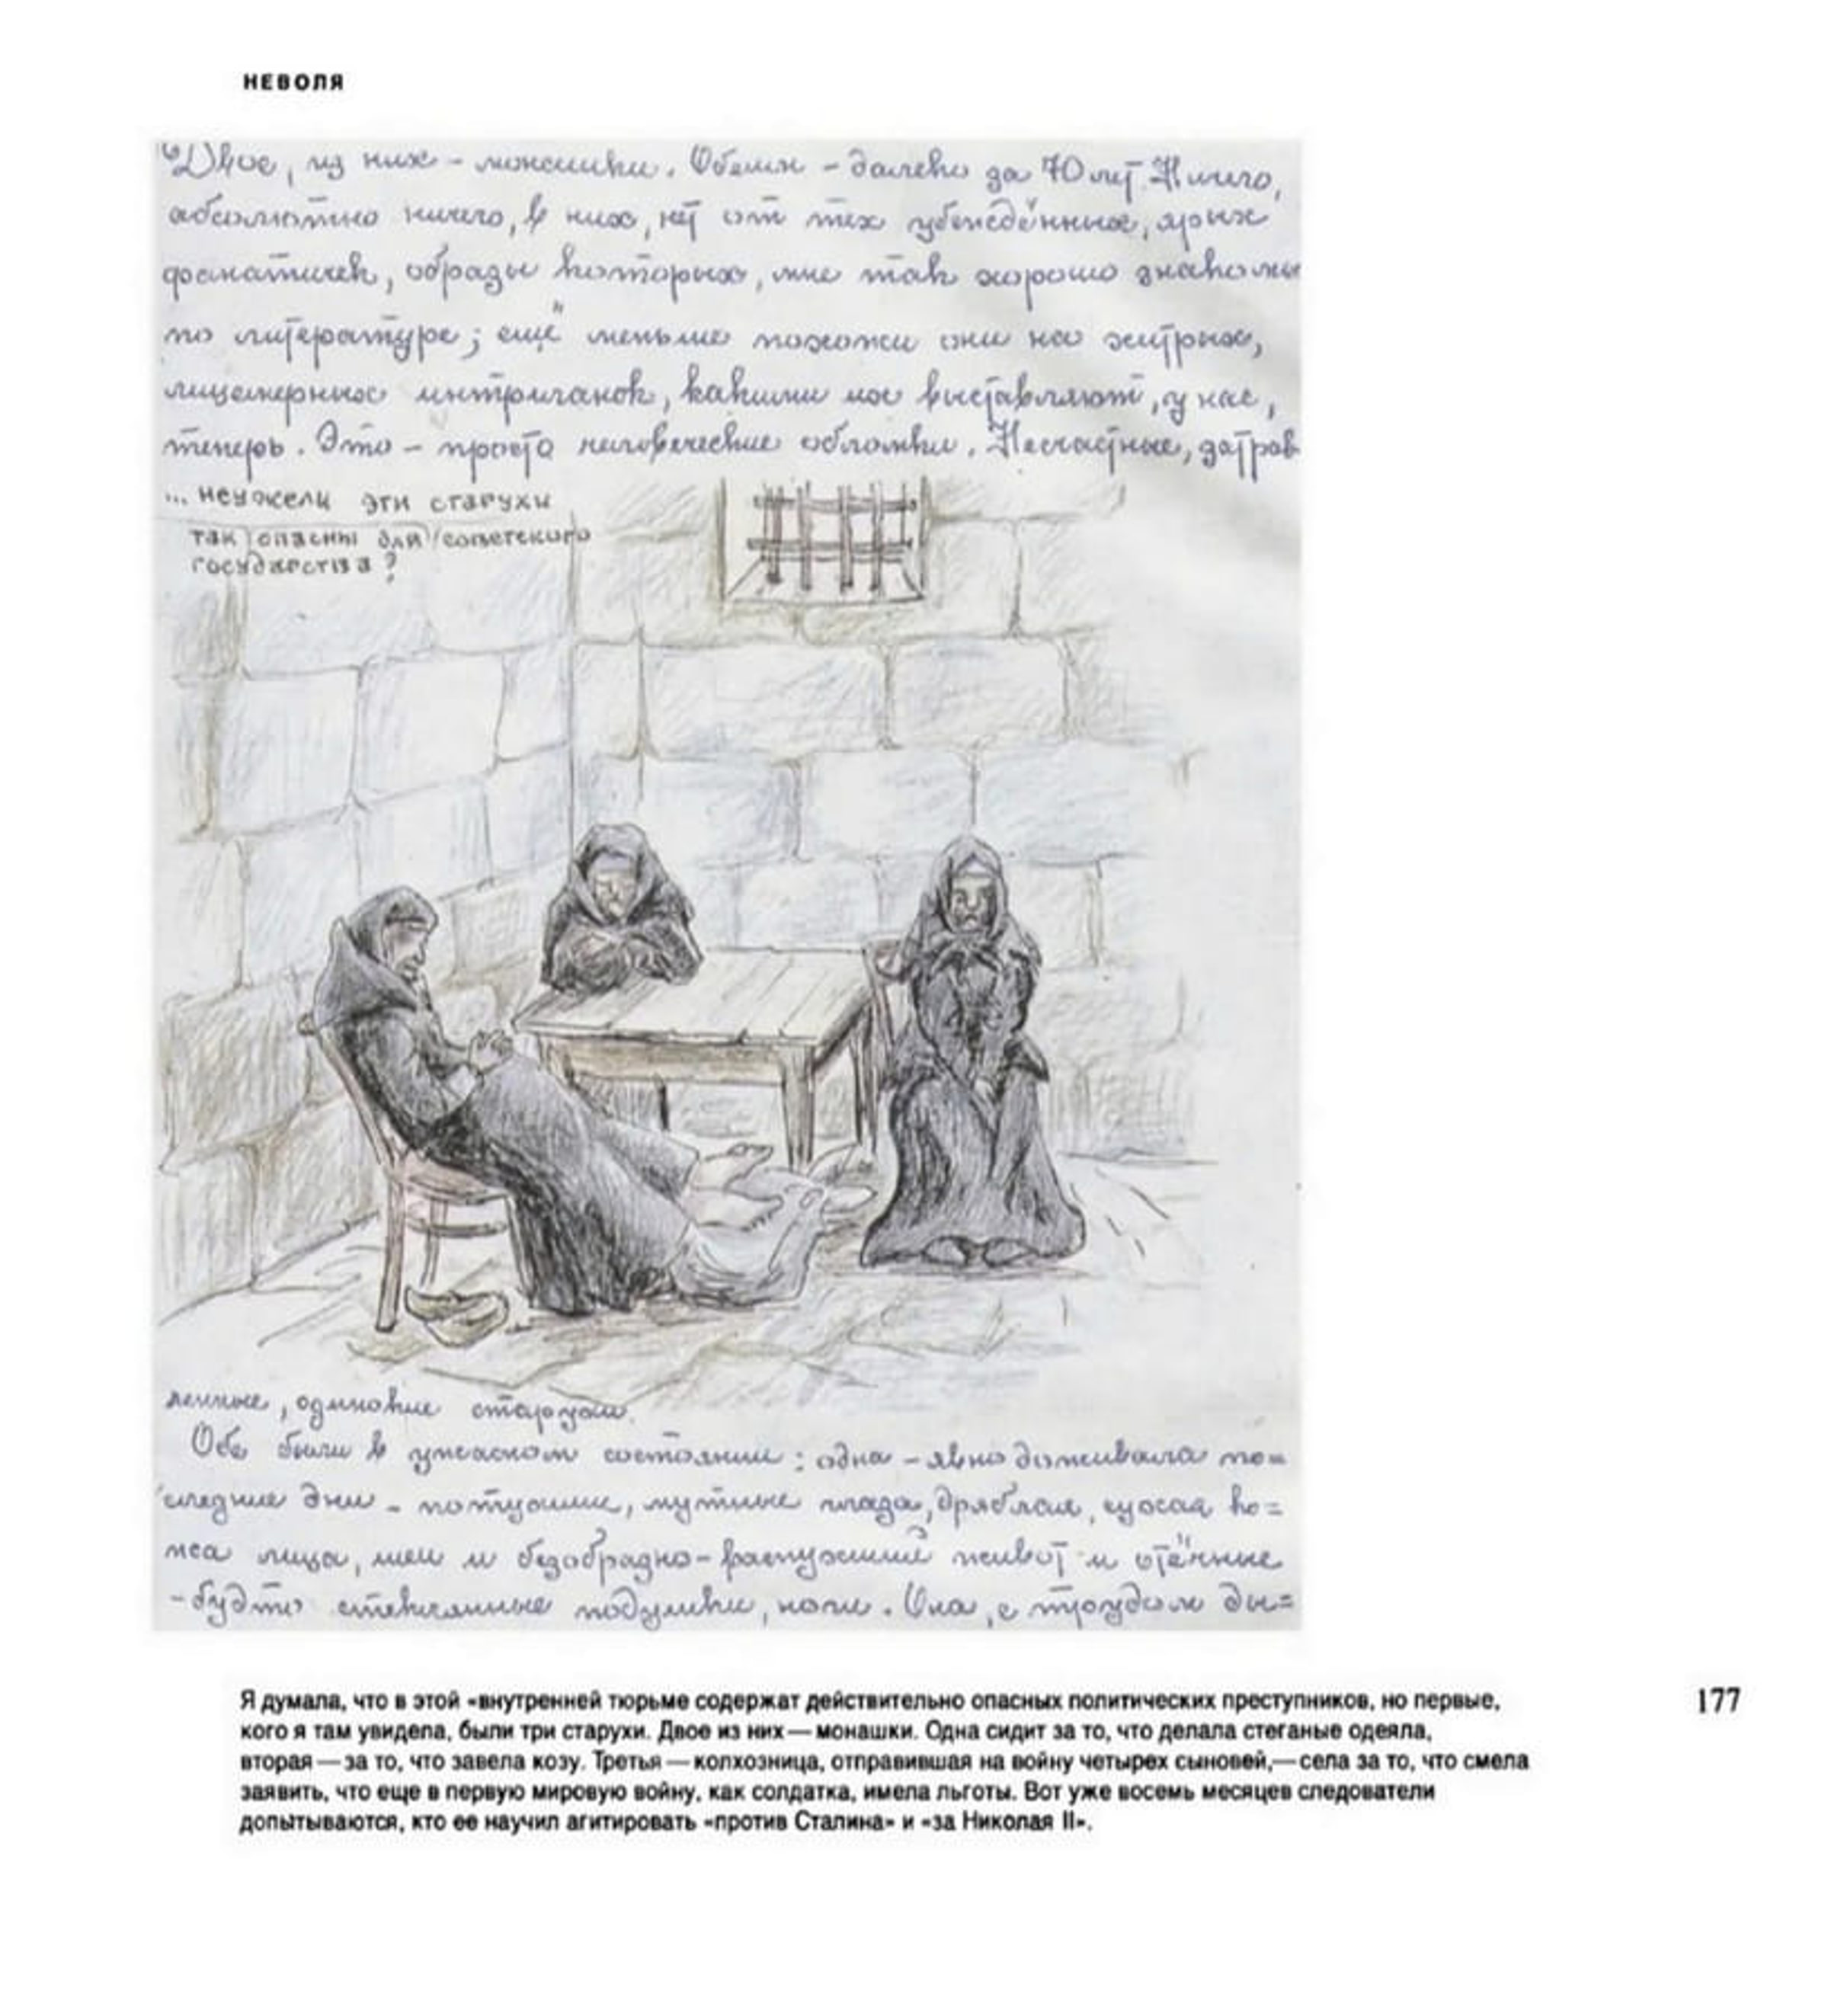 НЕВОЛЯ
Двое, из них - монашки. Обеим - далеко за 70 лет. Ничего,
абсолютно ничего, в них, нет от тех убеждённых, ярых
фанатичек, образы которых, мне так хорошо знакомы
по литературе; ещё меньше похожи они на хитрых,
лицемерных интриганок, какими их выставляют, у нас,
теперь. Это - просто человеческие обломки. Несчастные, затрав
... неужели эти старухи
так опасны для советского
государства?
ленные, одинокие старухи.
Обе были в ужасном состоянии: одна - явно доживала по=
следние дни - потухшие, мутные глаза, дряблая, сухая ко=
жа лица, шеи и безобразно-распухший живот и отёчные
- будто стеклянные подушки, ноги. Она, с трудом ды=
Я думала, что в этой «внутренней тюрьме содержат действительно опасных политических преступников, но первые,
кого я там увидела, были три старухи. Двое из них — монашки. Одна сидит за то, что делала стеганые одеяла,
вторая — за то, что завела козу. Третья — колхозница, отправившая на войну четырех сыновей,— села за то, что смела
заявить, что еще в первую мировую войну, как солдатка, имела льготы. Вот уже восемь месяцев следователи
допытываются, кто ее научил агитировать «против Сталина» и «за Николая II».
177